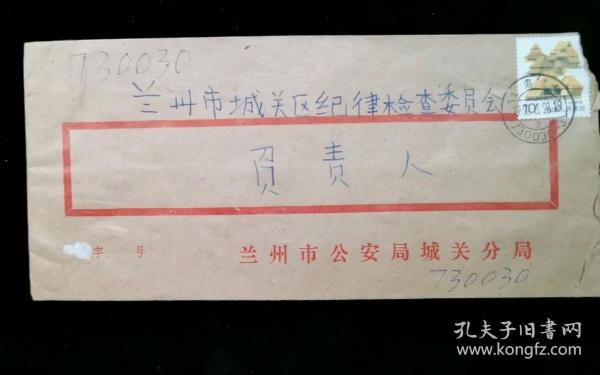 730030
兰州市城关区纪律检查委员会
负责人
字 号
兰州市公安局城关分局
730030
孔夫子旧书网
www.kongfz.com